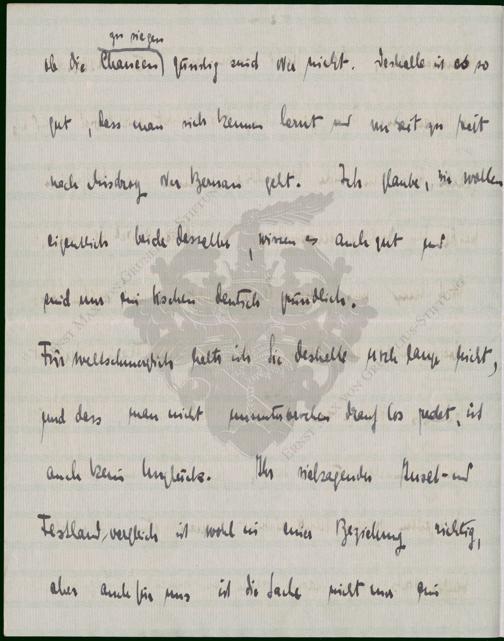 zu siegen
ob die Chancen günstig sind oder nicht. Deshalb ist es so
gut, dass man sich kennen lernt und von Zeit zu Zeit
nach Misdroy oder Bernau geht. Ich glaube, sie wollen
eigentlich beide dasselbe, wissen es auch gut und
sind nur ein bischen deutsch gründlich.
Für weltschmerzlich halte ich Sie deshalb noch lange nicht,
und dass man nicht ununterbrochen drauf los redet, ist
auch kein Unglück. Ihr vielsagender Insel- und
Festland-vergleich ist wohl in einer Beziehung richtig,
aber auch für uns ist die Sache nicht nur ein
ERNST MAX VON GRUNELIUS-STIFTUNG
ERNST MAX VON GRUNELIUS-STIFTUNG